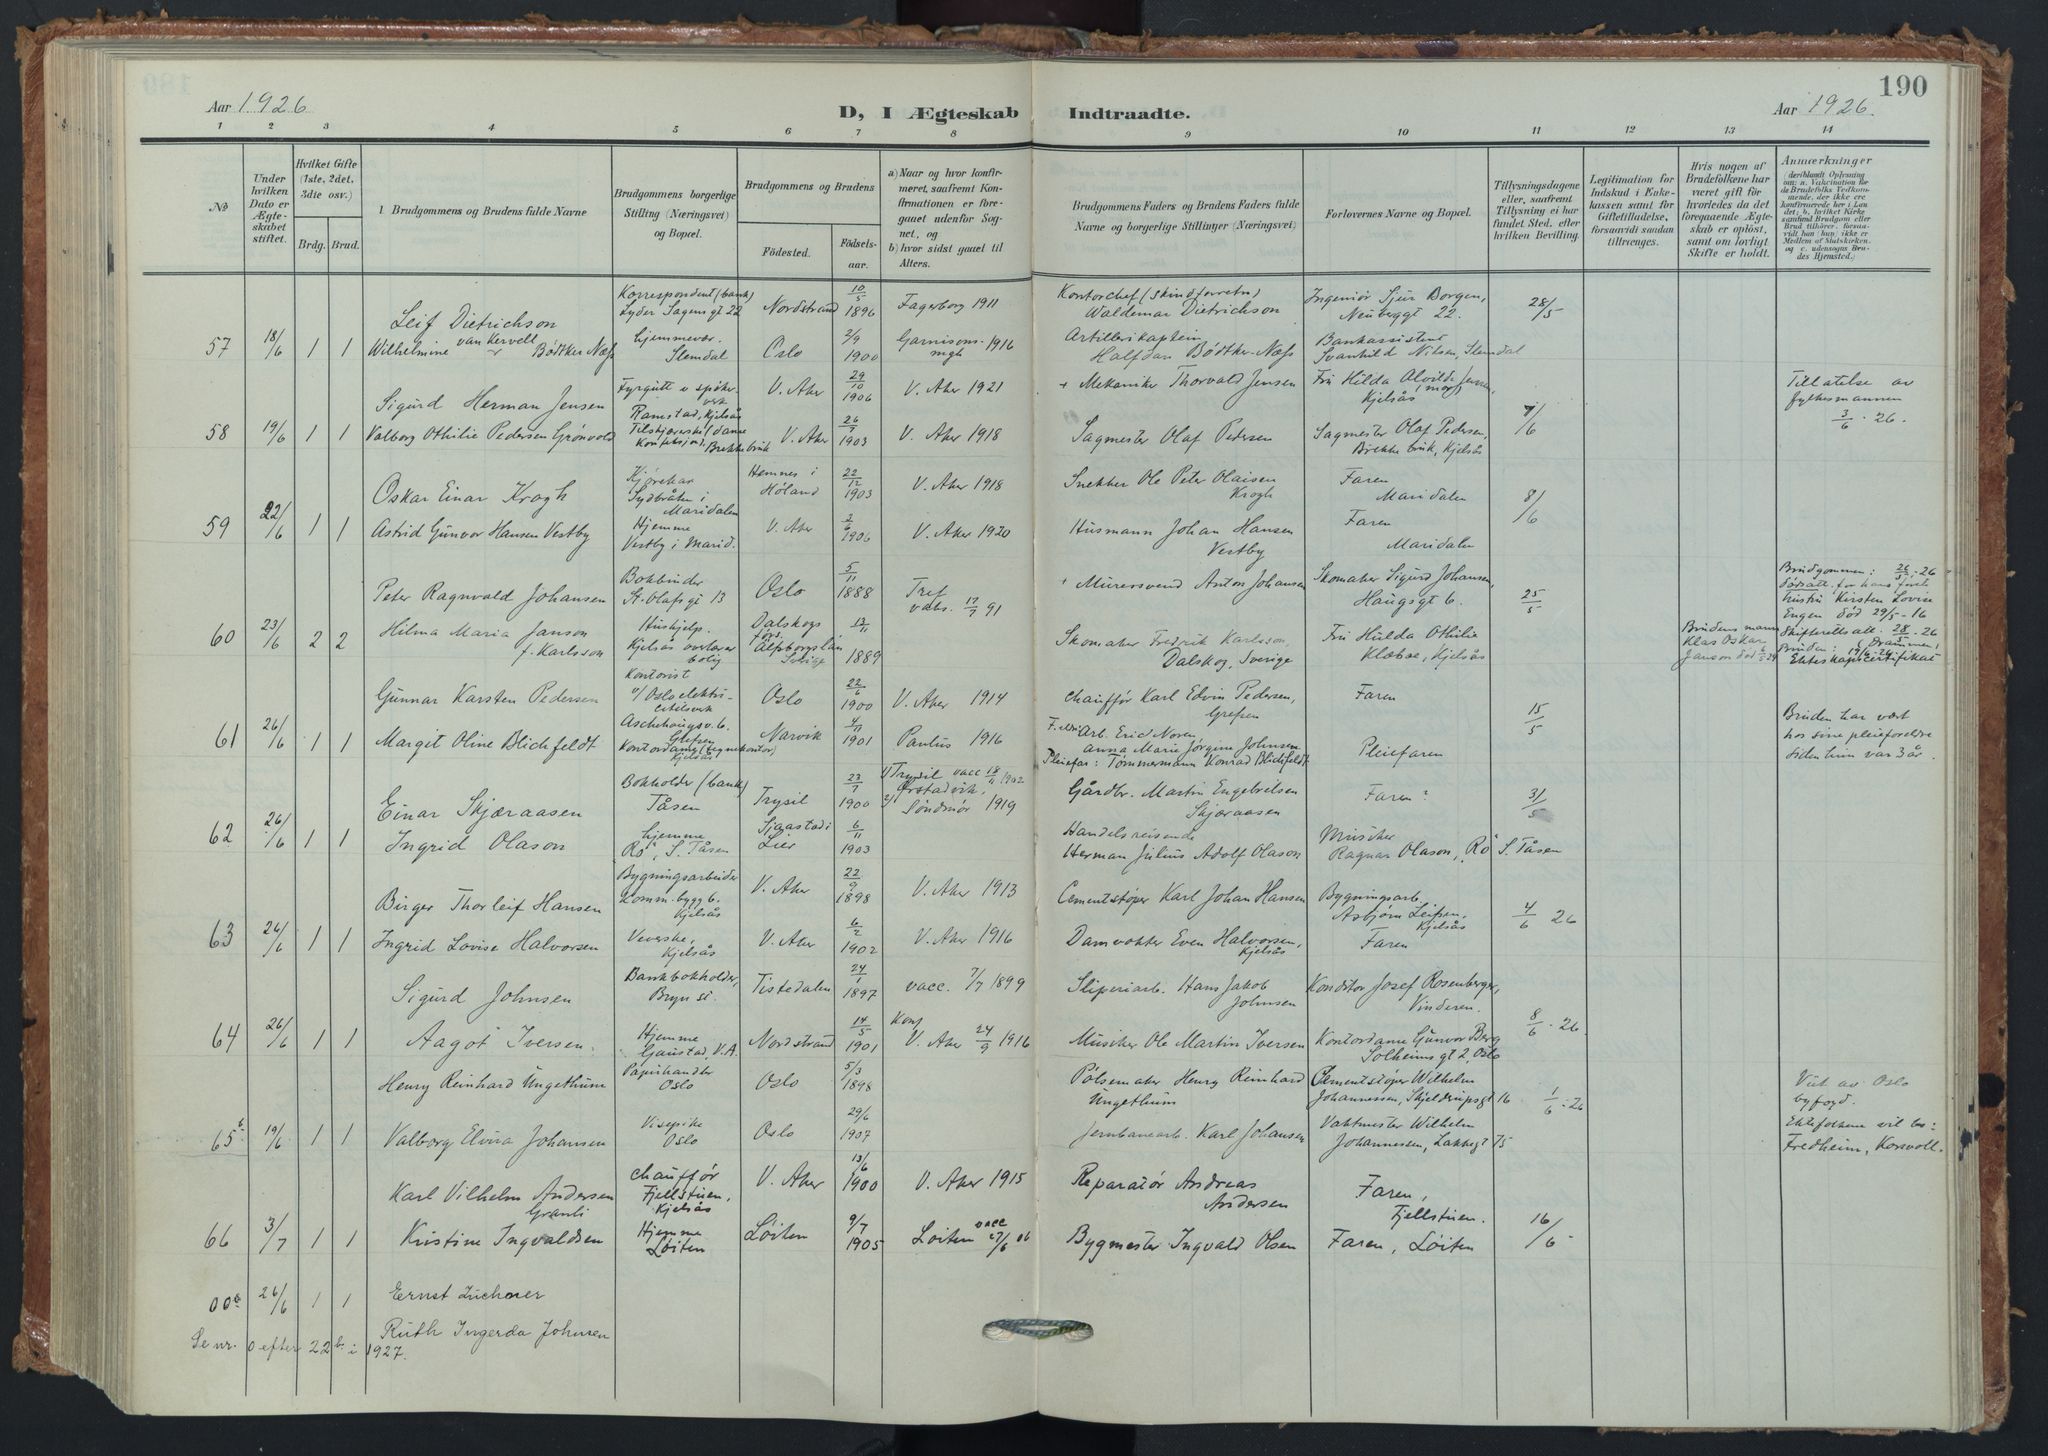 190
Aar 1926
D, I Ægteskab Indtraadte.
Aar 1926.
1 2 3 4 5 6 7 8 9 10 11 12 13 14
№
Under hvilken Dato er Ægteskabet stiftet.
Hvilket Gifte (1ste, 2det, 3die osv.)
Brdg. Brud.
Brudgommens og Brudens fulde Navne
Brudgommens borgerlige Stilling (Næringsvei) og Bopæl.
Brudgommens og Brudens
Födested. Födsels-aar.
a) Naar og hvor konfirmeret, saafremt Konfirmationen er foregaaet udenfor Sognet, og
b) hvor sidst gaaet til Alters.
Brudgommens Faders og Brudens Faders fulde Navne og borgerlige Stillinger (Næringsvei)
Forlovernes Navne og Bopæl.
Tillysningsdagene eller, saafremt Tillysning ei har fundet Sted, efter hvilken Bevilling.
Legitimation for Indskud i Enkekassen samt for Giftetilladelse, forsaavidt saadan tiltrænges.
Hvis nogen af Brudefolkene har været gift för hvorledes da det foregaaende Ægteskab er oplöst, samt om lovligt Skifte er holdt.
Anmærkninger
(deriblandt Oplysning om: a. Vakcination for de Brudefolks Vedkommende, der ikke ere konfirmerede her i Landet; b. hvilket Kirkesamfund Brudgom eller Brud tilhörer, forsaavidt han (hun) ikke er Medlem af Statskirken, og c. udensogns Brudes Hjemsted.)
Leif Dietrichson Korrespondent (bank) Lyder Sagens gt 22 Nordstrand 10/5 1896 Fagerborg 1911 Kontorchef (skindforretn) Waldemar Dietrichson Ingeniør Sjur Borgen, Neuberggt 22. 28/5
57 18/6 1 1 Wilhelmine van Kervell Bødtker Næss hjemmevær. Slemdal Oslo 2/9 1900 Garnisons mgh 1916 Artillerikaptein Halfdan Bødtker-Næss Bankassistent Svanhild Nilsen, Slemdal
Sigurd Herman Jensen Fyrgutt v spikerverk Ramstad, Kjelsås V. Aker 29/10 1906 V. Aker 1921 + Mekaniker Thorvald Jensen Fru Hilda Alvilde Jensen, mor, Kjelsås Tillatelse av fylkesmannen 3/6 - 26.
58 19/6 1 1 Valborg Othilie Pedersen Grønvold Tilskjærerske (dame konfeksjon) Brekke bruk V. Aker 26/7 1903 V. Aker 1918 Sagmester Olaf Pedersen Sagmester Olaf Pedersen, Brekke bruk, Kjelsås 7/6
Oskar Einar Krogh Kjørekar Sydbråten i Maridalen Hemnes i Høland 22/12 1903 V. Aker 1918 Snekker Ole Peter Olaisen Krogh Faren Maridalen 8/6
59 22/6 1 1 Astrid Gunvor Hansen Vestby Hjemme Vestby i Marid. V. Aker 2/6 1906 V. Aker 1920 Husmann Johan Hansen Vestby Faren Maridalen
Peter Ragnvald Johansen Bokbinder St. Olafsgt 13 Oslo 5/11 1888 Tref vabs. 17/7 91 + Muresvend Anton Johansen Skomaker Sigurd Johansen, Haugsgt 6. 25/5 Brudgommen: 26/5 - 26 Kirsten Lovise Engen død 29/5 - 16 Skifterettsatt. 28/5 - 26
60 23/6 2 2 Hilma Maria Janson f. Karlsson Hushjelp. Kjelsås overlærerbolig Dalskogs førs. Älfsborgslän Sverige 13/11 1889 Skomaker Fredrik Karlsson, Dalskog, Sverige Fru Hulda Othilie Klæboe, Kjelsås Brudens mann Klas Oskar Janson død Bruden: Drammen, Ekteskapscertifikat
Gunnar Karsten Pedersen Kontorist v/ Oslo elektricitetsverk Oslo 22/6 1900 V. Aker 1914 Chauffør Karl Edvin Pedersen, Grefsen Faren 15/5
61 26/6 1 1 Margit Oline Blichfeldt Aschehougsv. 6. Grefsen Kontordame (tegnekontor) Kjelsås Narvik 4/11 1901 Paulus 1916 Arb. Eric Noren Anna Marie Jørgine Johnsen Pleiefar: Tømmermann Konrad Blichfeldt Pleiefaren Bruden har vært hos sine pleieforeldre siden hun var 3 år.
Einar Skjæraasen Bokholder (bank) Tåsen Trysil 23/7 1900 1) Trysil vacc 18/11 1902 2) Ørstadvik, Søndmør 1919 Gårdbr. Martin Engebretsen Skjæraasen Faren? 31/5
62 26/6 1 1 Ingrid Olason hjemme "Rö", S. Tåsen Sjaastad i Lier 6/11 1903 Handelsreisende Herman Julius Adolf Olason Musiker Ragnar Olason, "Rö" S. Tåsen
Birger Thorleif Hansen Bygningsarbeider Komm. bygg 6. Kjelsås V. Aker 22/9 1898 V. Aker 1913 Cementstøper Karl Johan Hansen Bygningsarb. Asbjørn Leifsen, Kjelsås 4/6 26
63 26/6 1 1 Ingrid Lovise Halvorsen Veverske, Kjelsås V. Aker 6/2 1902 V. Aker 1916 Damvokter Even Halvorsen, Kjelsås Faren
Sigurd Johnsen Bankbokholder, Bryn st. Tistedalen 24/1 1897 vacc. 7/7 1899 Sliperiarb. Hans Jakob Johnsen Konditor Josef Rosenberger, Vinderen. 8/6 - 26.
64 26/6 1 1 Aagot Iversen. Hjemme Gaustad, V.A. Nordstrand 14/5 1901 Konf V. Aker 24/9 1916 Musiker Ole Martin Iversen Kontordame Gunvor Berg Solheimsgt 2, Oslo
Henry Reinhard Ungethüm Papirhandler Oslo Oslo 5/3 1898 Pølsemaker Henry Reinhard Ungethüm Cementstøper Wilhelm Johannessen, Skjeldrupsgt 16 1/6 - 26 Viet av Oslo byfogd.
65 b 19/6 1 1 Valborg Elvira Johansen Visepike Oslo Oslo 29/6 1907 Jernbanearb. Karl Johansen Vaktmester Wilhelm Johannessen, Lakkegt 75 Ektefolkene vil bo: Fredheim, Korsvoll.
Karl Vilhelm Andersen Granli Chauffør Fjellstuen, Kjelsås V. Aker 13/6 1900 V. Aker 1915 Reparatør Andreas Andersen Faren, Fjellstuen. 16/6
66 3/7 1 1 Kristine Ingvaldsen Hjemme Løiten Løiten 9/7 1905 Løiten vacc 27/6 06 Bygmester Ingvald Olsen Faren, Løiten
00 b 26/6 1 1 Ernst Zuchner
Ruth Ingerda Johnsen
Se nr. 0 efter 22 b. i 1927.